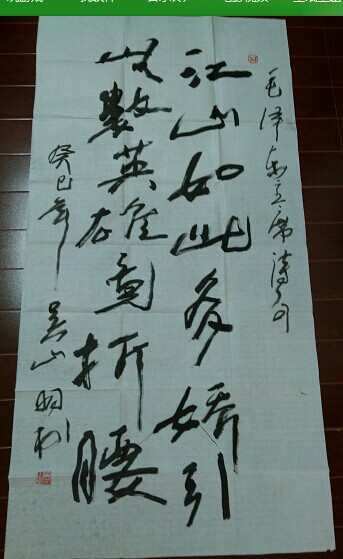 毛泽东主席诗句
江山如此多娇引
無數英雄竞折腰
癸巳年 吴山明